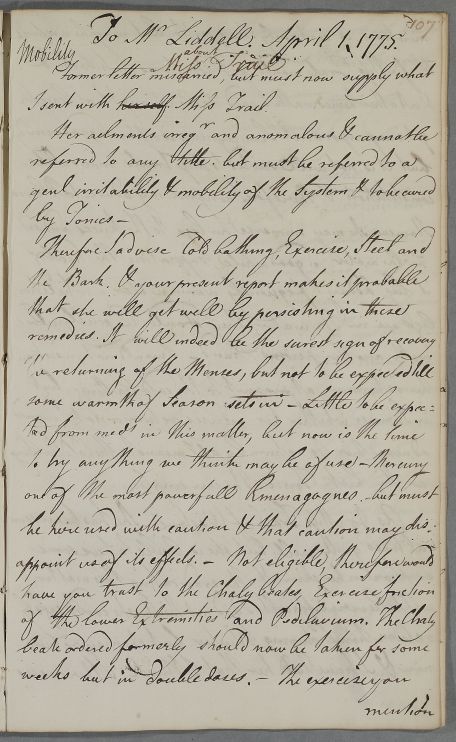 107
To Mr Liddell. April 1, 1775.
Mobility
about
Miss Trail
Former letter miscarried, but must now supply what
I sent with herself Miss Trail
Her ailments irregr and anomalous & cannot be
referred to any title. but must be referred to a
genl irritability & mobility of the System & to be cured
by Tonics –
Therefore I advise Cold bathing, Exercise, Steel and
the Bark. & your present report makes it probable
that she will get well by persisting in these
remedies. It will indeed be the surest sign of recovery
returning of the Menses, but not to be expected till
some warmth of Season sets in – Little to be expec=
ted from meds in this matter, but now is the time
to try any thing we think may be of use – Mercury
one of the most powerfull Emenagogues, but must
be here used with caution & that caution may dis:
appoint us of its effects. – Not eligible, therefore would
have you trust to the Chalybeates, Exercise friction
of the lower Extremities and Pediluvium. The Chaly
beate ordered formerly should now be taken for some
weeks but in double doses. – The exercise you
mention